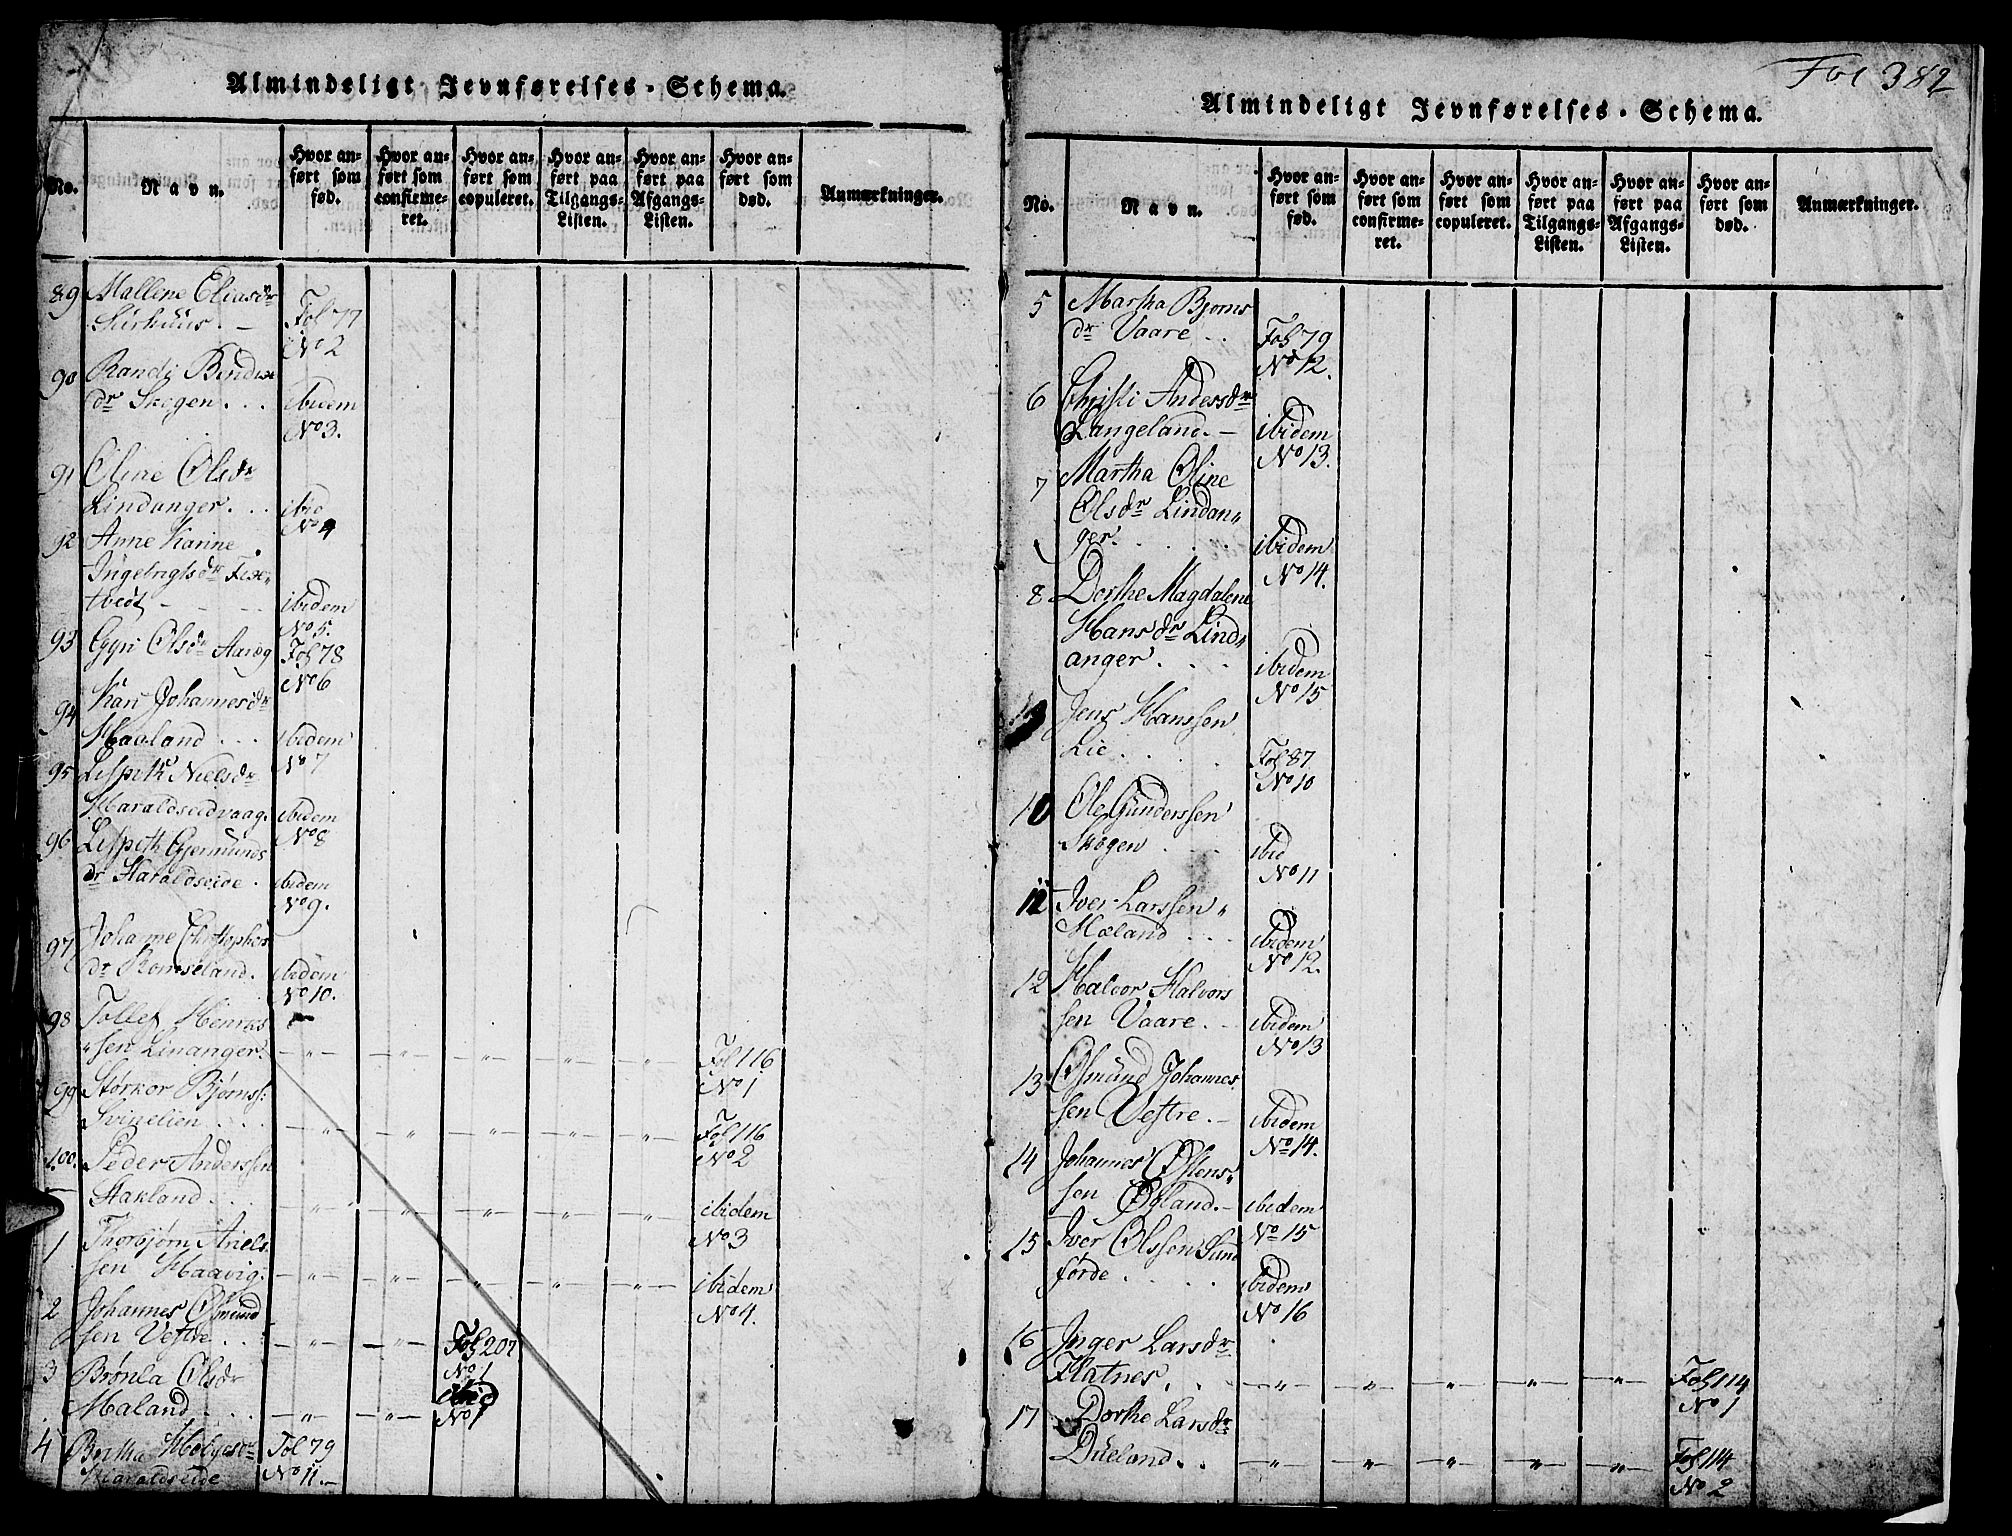 Almindeligt Jevnførelses-Schema.
No.
Navn.
Hvor anført som fød.
Hvor anført som confirmeret.
Hvor anført som copuleret.
Hvor anført paa Tilgangs-Listen.
Hvor anført paa Afgangs-Listen.
Hvor anført som død.
Anmærkninger.
89 Mallene Eliasdr
Fol 77
No 2
90 Randi
dr Skogen . . . ibidem
No 3.
91 Oline Olsdr
Lindanger. . . ibid
No 4
92 Anne Karine
ibidem
No 5.
93 Olsdr Fol 78
No 6
94 Kari Johannesdr
Haaland . . . ibidem
No 7
95 Lispeth Nielsdr
Haraldseidvaag. ibidem
No 8
96 Lispeth Gjermunds
dr Haraldseide. ibidem
No 9.
97 Johanne Christophers
dr Romseland. ibidem
No 10.
98 Tollef Henriks
sen Linanger. Fol 116
No 1
99 Størkor Bjørnss:
Svinelien . . . Fol 116
No 2
100. Peder Anderssen
Stakland . . . ibidem
No 3
1 Thorbjørn Ariels
sen Haavig. ibidem
No 4.
2 Johannes Osmund
sen Vestre . . Fol 207
No 1
3 Brønla Olsdr
ibid
Maland . . . No 1
4 Britha Helgesdr Fol 79
Haraldseide No 11.-
Fol 382
Almindeligt Jevnførelses-Schema.
No.
Navn.
Hvor anført som fød.
Hvor anført som confirmeret.
Hvor anført som copuleret.
Hvor anført paa Tilgangs-Listen.
Hvor anført paa Afgangs-Listen.
Hvor anført som død.
Anmærkninger.
5 Martha Bjørns
dr Vaare . . Fol 79
No 12.
6 Christi Andersdr
Langeland.- ibidem
No 13.
7 Martha Oline
Olsdr Lindan„
ger. . . . ibidem
No 14.
8 Dorthe Magdalene
Hansdr Lind„
anger. . . ibidem
No 15
Jens Hanssen
Lie. . . . Fol 87
No 10
10 Ole Gunderssen
Skogen . . . ibid
No 11
11 Iver Larssen„
Hæland . . . ibidem
No 12.
12 Halvor Halvors
sen Vaare. - ibidem
No 13
13 Osmund Johannes
sen Vestre. - ibidem
No 14.
14 Johannes Østens„
sen Øyland.- ibidem
No 15
15 Iver Olssen Sund
førde . . . . ibidem
No 16
16 Inger Larsdr
Flatnes, . . Fol 114
No 1
17 Dorthe Larsdr
Dueland. . Fol 114
No 2